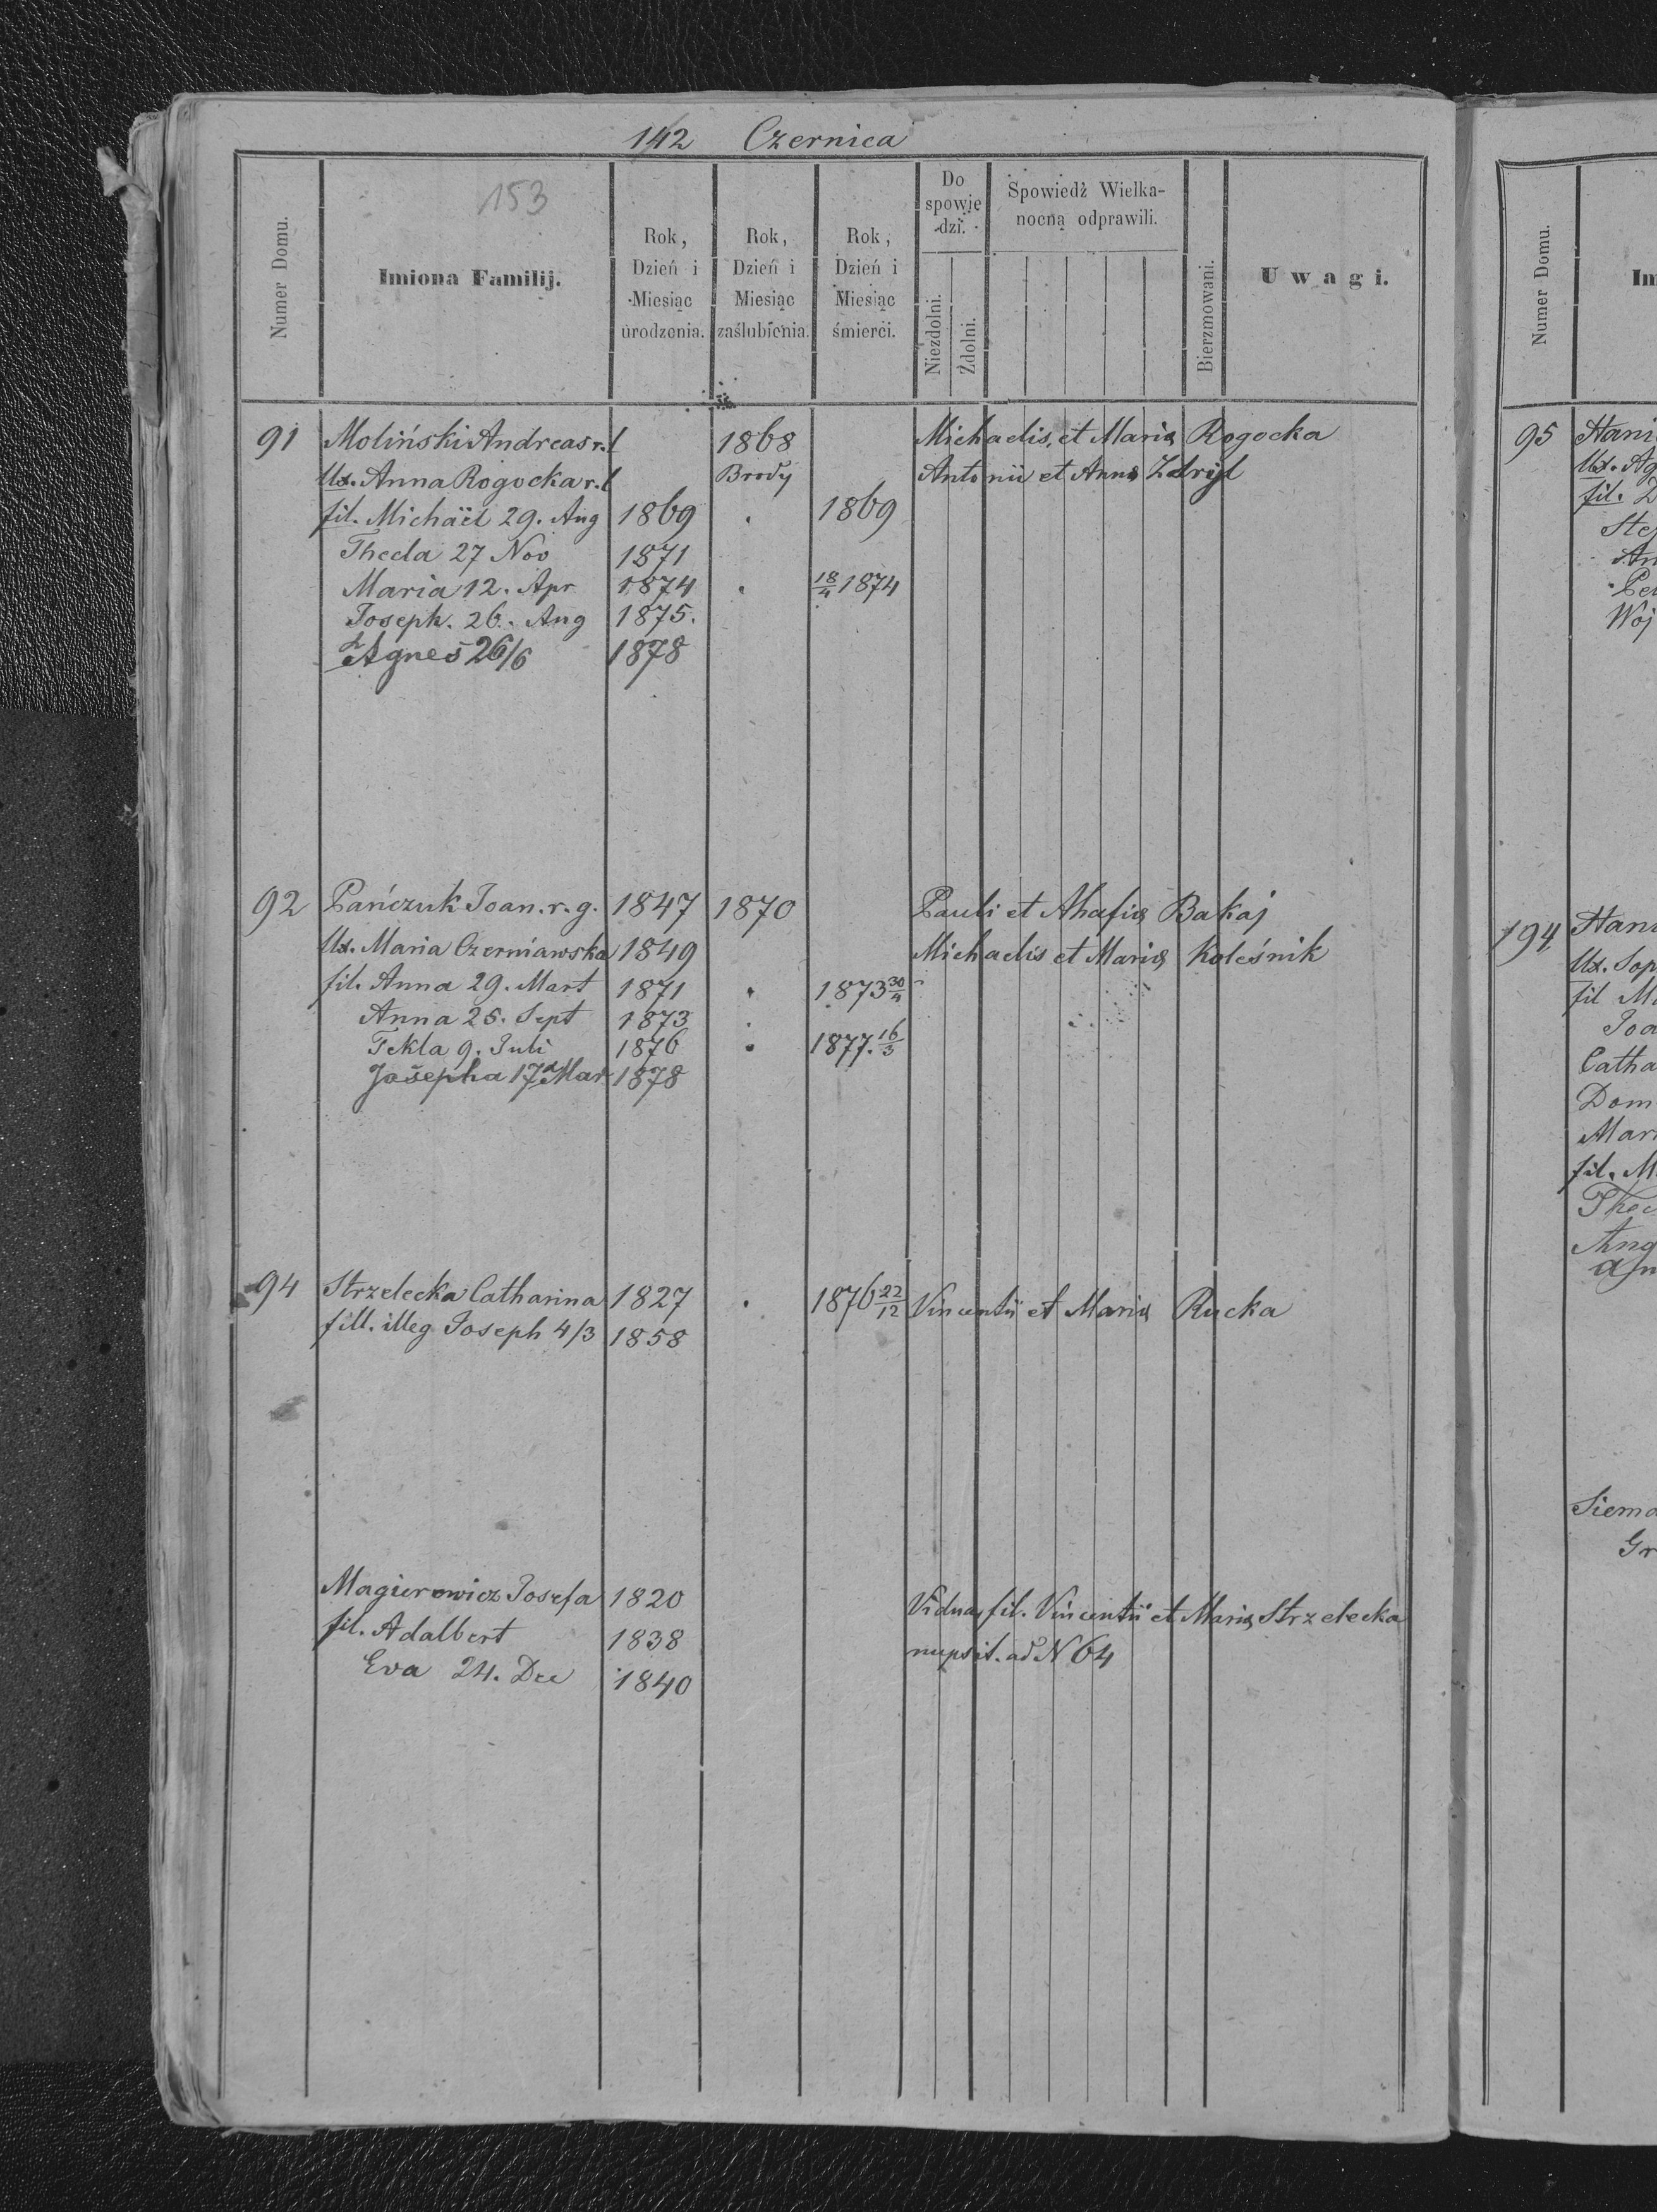 142 Czernica
153
Numer Domu.
Imiona Familij.
Rok, Dzień i Miesiąc urodzenia.
Rok, Dzień i Miesiąc zaślubienia.
Rok, Dzień i Miesiąc śmierci.
Do spowiedzi.
Niezdolni.
Zdolni.
Spowiedź Wielkanocną odprawili.
Bierzmowani.
Uwagi.
91 Moliński Andreas r. l 1868 Michaelis et Maria Rogocka
Ux. Anna Rogocka r. l Brody Antonii et Anna
fil. Michaël 29. Aug 1869 . 1869
Thecla 27 Nov 1871
Maria 12. Apr 1874 . 18/4 1874
Joseph. 26. Aug 1875.
Agnes 26/6 1878
92 Pańczuk Joan. r. g. 1847 1870 Pauli et Ahafia Bakaj
Ux. Maria Czerniawska 1849 Michaelis et Maria Koleśnik
fil. Anna 29. Mart 1871 . 1873 30/4
Anna 25. Sept 1873 .
Tekla 9. Juli 1876 . 1877. 16/3
Josepha 17 Mar 1878
94 Strzelecka Catharina 1827 . 1876 22/12 Vincentii et Maria Rucka
fill. illeg Joseph 4/3 1858
Magierowicz Josefa 1820 Vidua, fil. Vincentii et Maria Strzelecka
fil. Adalbert 1838 nupsit. ad N 64
Eva 24. Dec 1840
Numer Domu.
Im
95 Hani
Ux. Ag
fil. D
Ste
An
Woj
194 Hani
Ux. Sop
fil M
Joa
Catha
Dom
Mari
fil. M
Thec
Ang
Siema
Gr